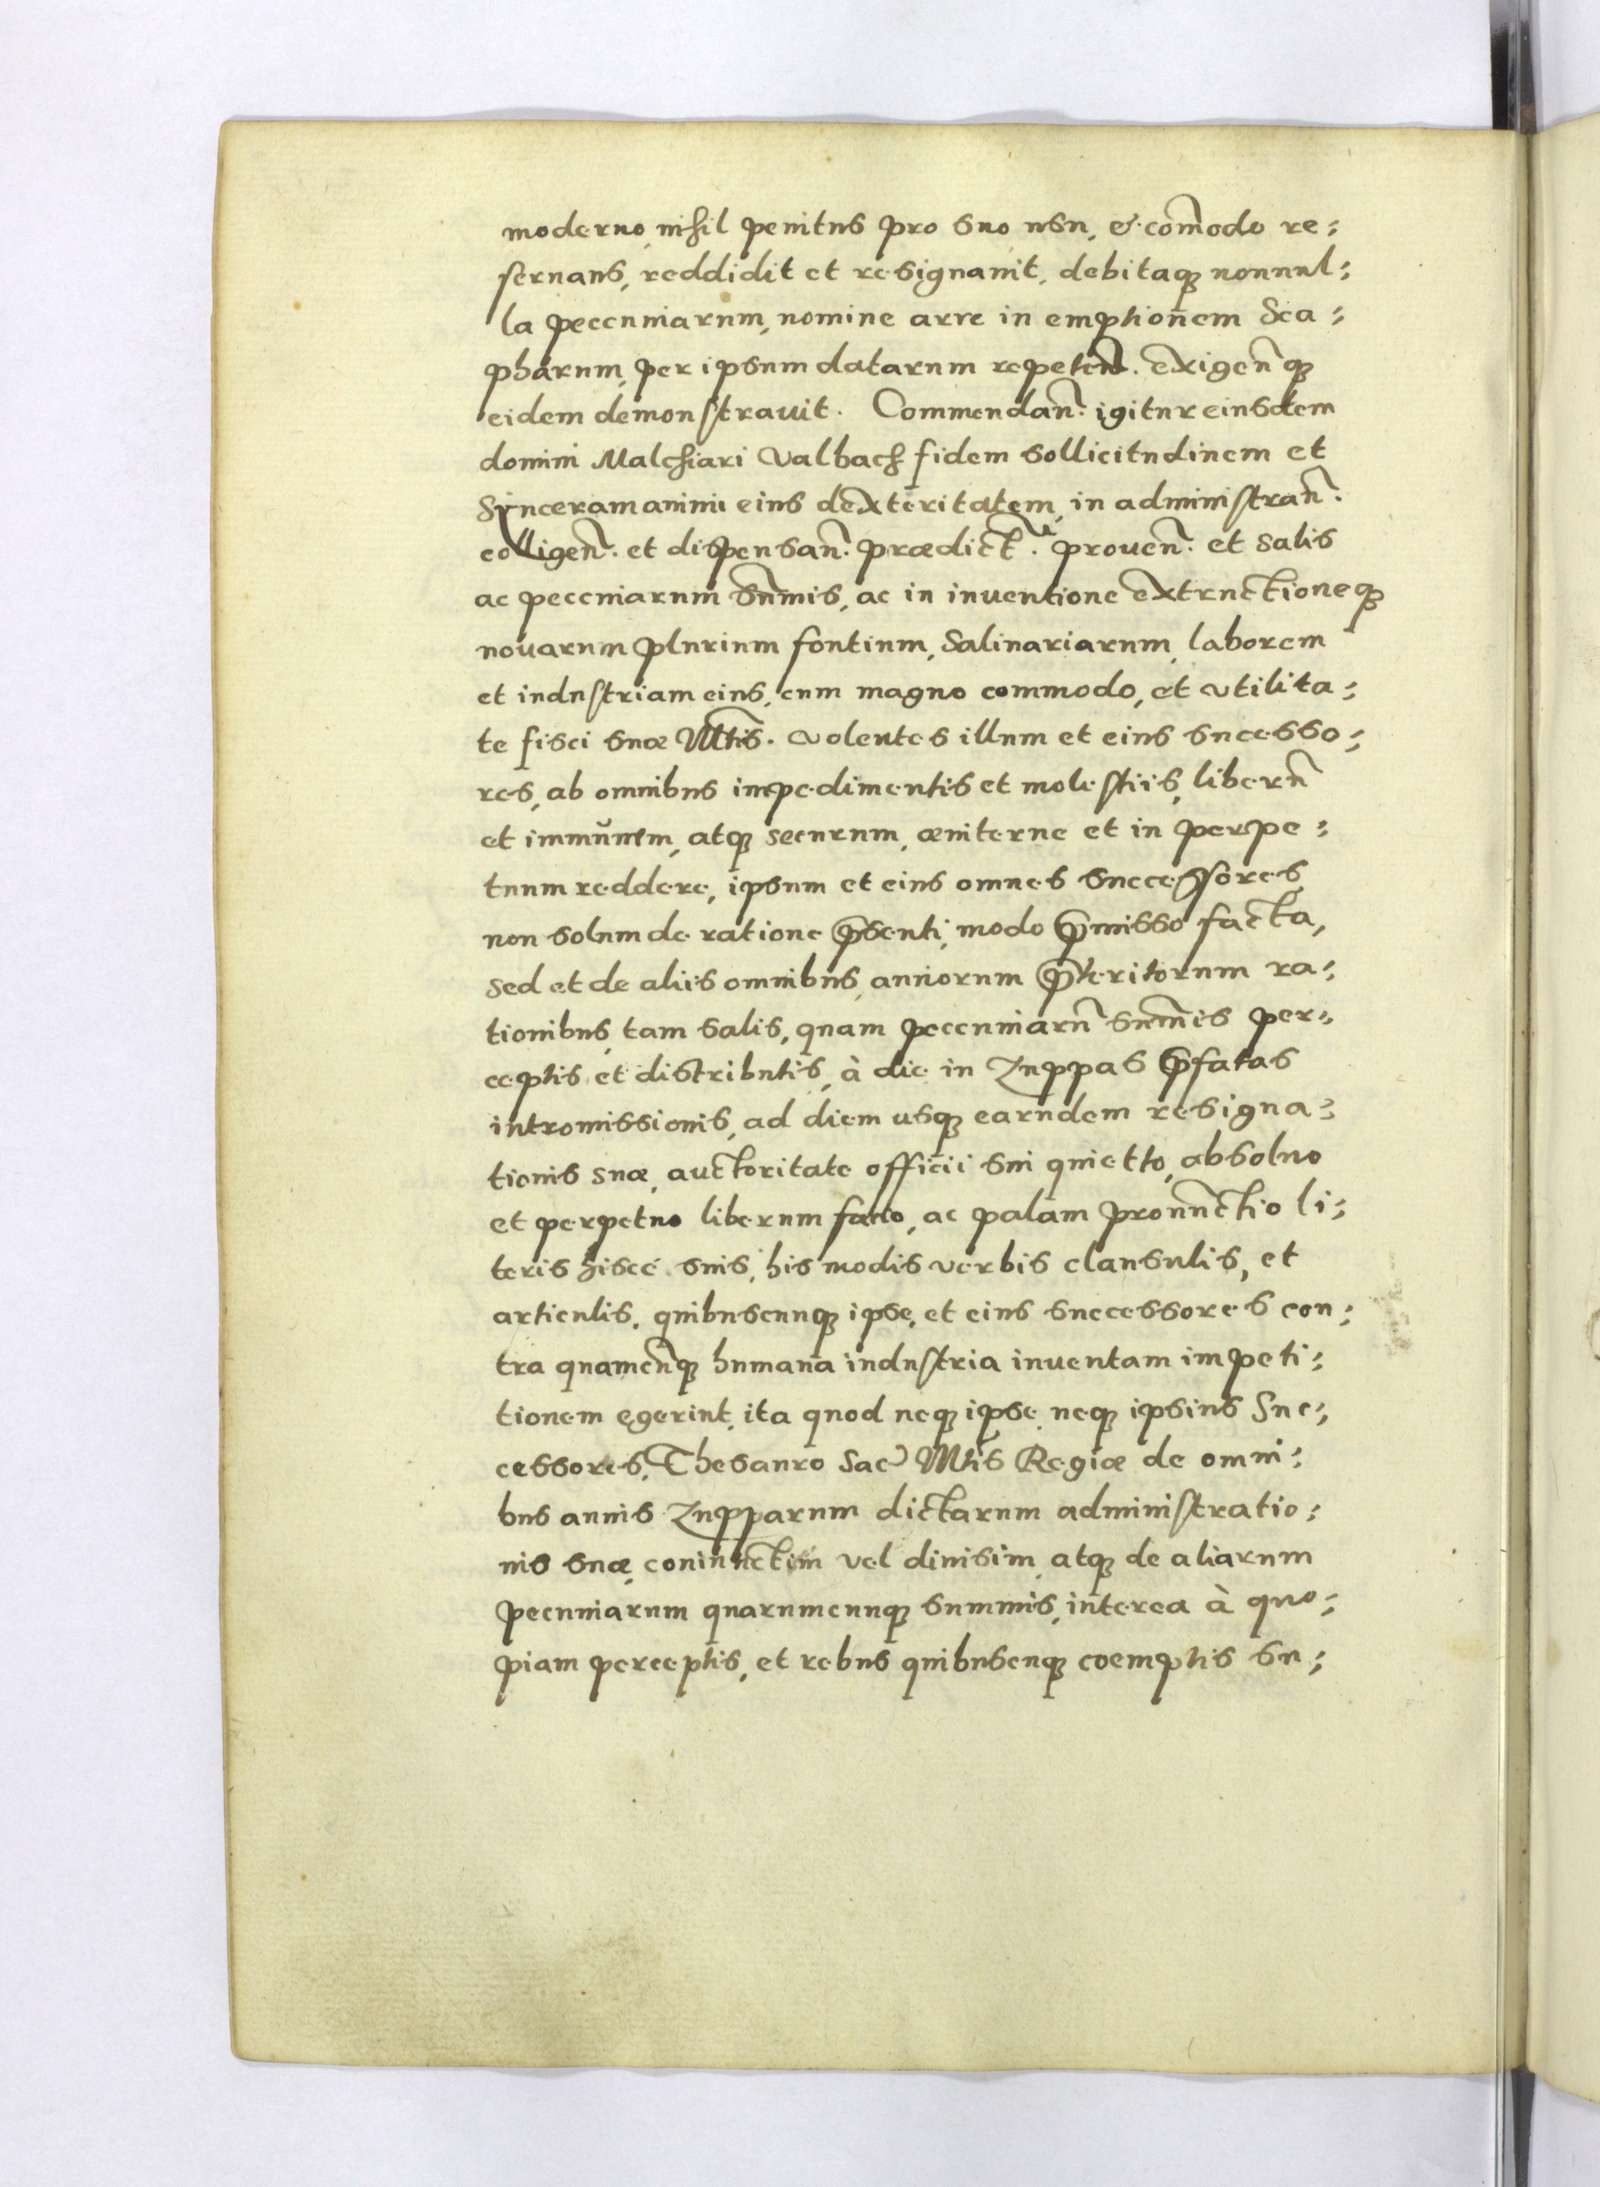 moderno, nihil penitus pro suo usu, & com̃odo re⸗
seruans, reddidit et resignauit, debitaq₃ nonnul⸗
la peccuniarum, nomine arre in emptionem Sca⸗
pharum, per ipsum datarum repeteñ. exigeñq₃
eidem demonstrauit. Commendañ. igitur eiusdem
domini Malchiari Valbach fidem sollicitudinem et
Synceram animi eius dexteritatem, in administrañ.
colligeñ. et dispensañ. prædict. prouen̄. et salis
ac peccniarum sum̃is, ac in inuentione extructioneq₃
nouarum plurium fontium, Salinariarum, laborem
et industriam eius, cum magno commodo, et vtilita⸗
te fisci suæ Mtis. volentes illum et eius sucesso⸗
res, ab omnibus impedimentis et molestiis, liberũ
et immunem, atq₃ securum, æuiterne et in perpe⸗
tuum reddere, ipsum et eius omnes successores,
non solum de ratione p̃senti, modo p̃misso facta,
sed et de aliis omnibus, annorum p̃teritorum ra⸗
tionibus, tam salis, quam peccuniarũ sum̃is per⸗
ceptis et distributis, à die in Zuppas p̃fatas
intromissionis, ad diem usq₃ earundem resigna⸗
tionis suæ, auctoritate officii sui quietto, absoluo
et perpetuo liberum facio, ac palam pronũctio li⸗
teris hisce suis, his modis verbis clausulis, et
articulis, quibuscunq₃ ipse, et eius successores con⸗
tra quamcũq₃ humana industria inuentam impeti⸗
tionem egerint, ita quod neq₃ ipse, neq₃ ipsius Suc⸗
cessores, Thesauro Sac Mtis Regiæ de omni⸗
bus annis Zupparum dictarum administratio⸗
nis suæ, coniunctim vel diuisim, atq₃ de aliarum
pecuniarum quarumcunq₃ summis, interea à quo⸗
piam perceptis, et rebus quibuscunq₃ coemptis su⸗